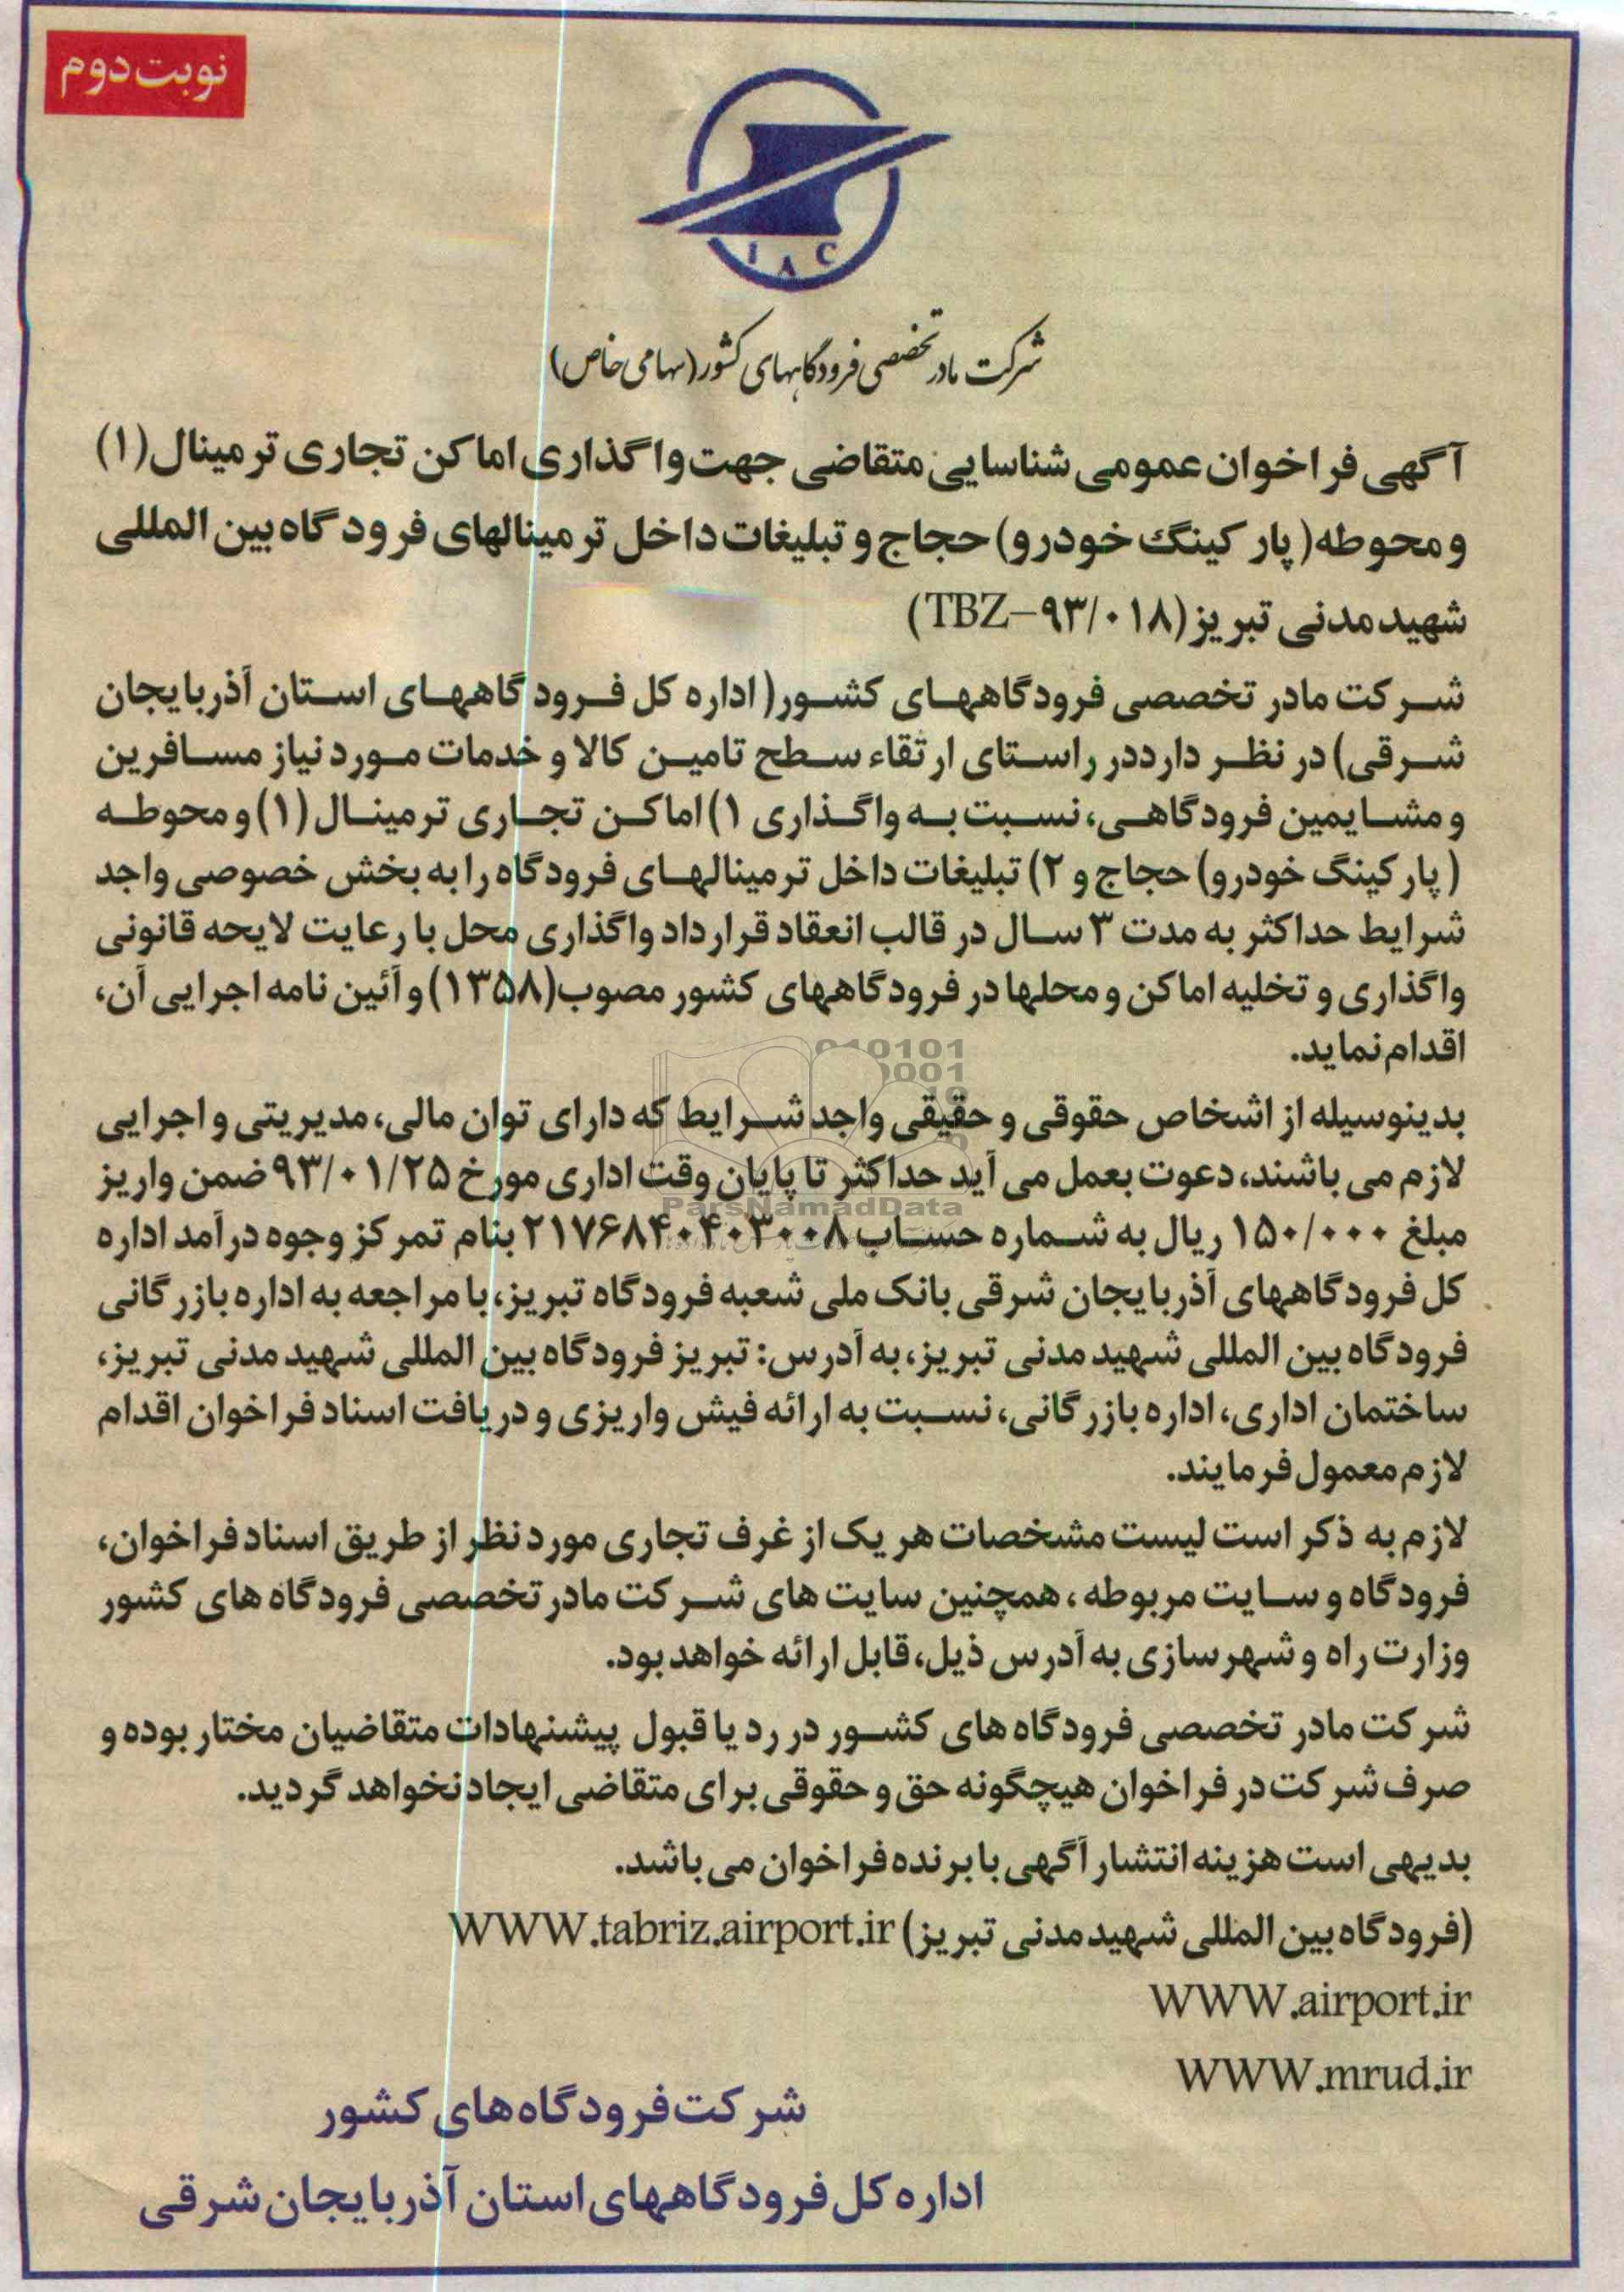 نوبت دوم
I A C
شرکت مادر تخصصی فرودگاههای کشور (سهامی خاص)
آگهی فراخوان عمومی شناسایی متقاضی جهت واگذاری اماکن تجاری ترمینال (۱)
و محوطه( پارکینگ خودرو) حجاج و تبلیغات داخل ترمینالهای فرودگاه بین المللی
شهید مدنی تبریز (TBZ-۹۳/۰۱۸)
شرکت مادر تخصصی فرودگاههای کشور( اداره کل فرودگاههای استان آذربایجان
شرقی) در نظر دارددر راستای ارتقاء سطح تامین کالا و خدمات مورد نیاز مسافرین
و مشایمین فرودگاهی، نسبت به واگذاری ۱) اماکن تجاری ترمینال (۱) و محوطه
( پارکینگ خودرو) حجاج و ۲) تبلیغات داخل ترمینالهای فرودگاه را به بخش خصوصی واجد
شرایط حداکثر به مدت ۳ سال در قالب انعقاد قرارداد واگذاری محل با رعایت لایحه قانونی
واگذاری و تخلیه اماکن و محلها در فرودگاههای کشور مصوب(۱۳۵۸) و آئین نامه اجرایی آن،
اقدام نماید.
بدینوسیله از اشخاص حقوقی و حقیقی واجد شرایط که دارای توان مالی، مدیریتی و اجرایی
لازم می باشند، دعوت بعمل می آید حداکثر تا پایان وقت اداری مورخ ۹۳/۰۱/۲۵ ضمن واریز
مبلغ ۱۵۰/۰۰۰ ریال به شماره حساب ۲۱۷۶۸۴۰۴۰۳۰۰۸ بنام تمرکز وجوه درآمد اداره
کل فرودگاههای آذربایجان شرقی بانک ملی شعبه فرودگاه تبریز، با مراجعه به اداره بازرگانی
فرودگاه بین المللی شهید مدنی تبریز، به آدرس: تبریز فرودگاه بین المللی شهید مدنی تبریز،
ساختمان اداری، اداره بازرگانی، نسبت به ارائه فیش واریزی و دریافت اسناد فراخوان اقدام
لازم معمول فرمایند.
لازم به ذکر است لیست مشخصات هر یک از غرف تجاری مورد نظر از طریق اسناد فراخوان،
فرودگاه و سایت مربوطه ، همچنین سایت های شرکت مادر تخصصی فرودگاه های کشور
وزارت راه و شهرسازی به آدرس ذیل، قابل ارائه خواهد بود.
شرکت مادر تخصصی فرودگاه های کشور در رد یا قبول پیشنهادات متقاضیان مختار بوده و
صرف شرکت در فراخوان هیچگونه حق و حقوقی برای متقاضی ایجاد نخواهد گردید.
بدیهی است هزینه انتشار آگهی با برنده فراخوان می باشد.
(فرودگاه بین المللی شهید مدنی تبریز) WWW.tabriz.airport.ir
WWW.airport.ir
WWW.mrud.ir
شرکت فرودگاه های کشور
اداره کل فرودگاههای استان آذربایجان شرقی
ParsNamadData